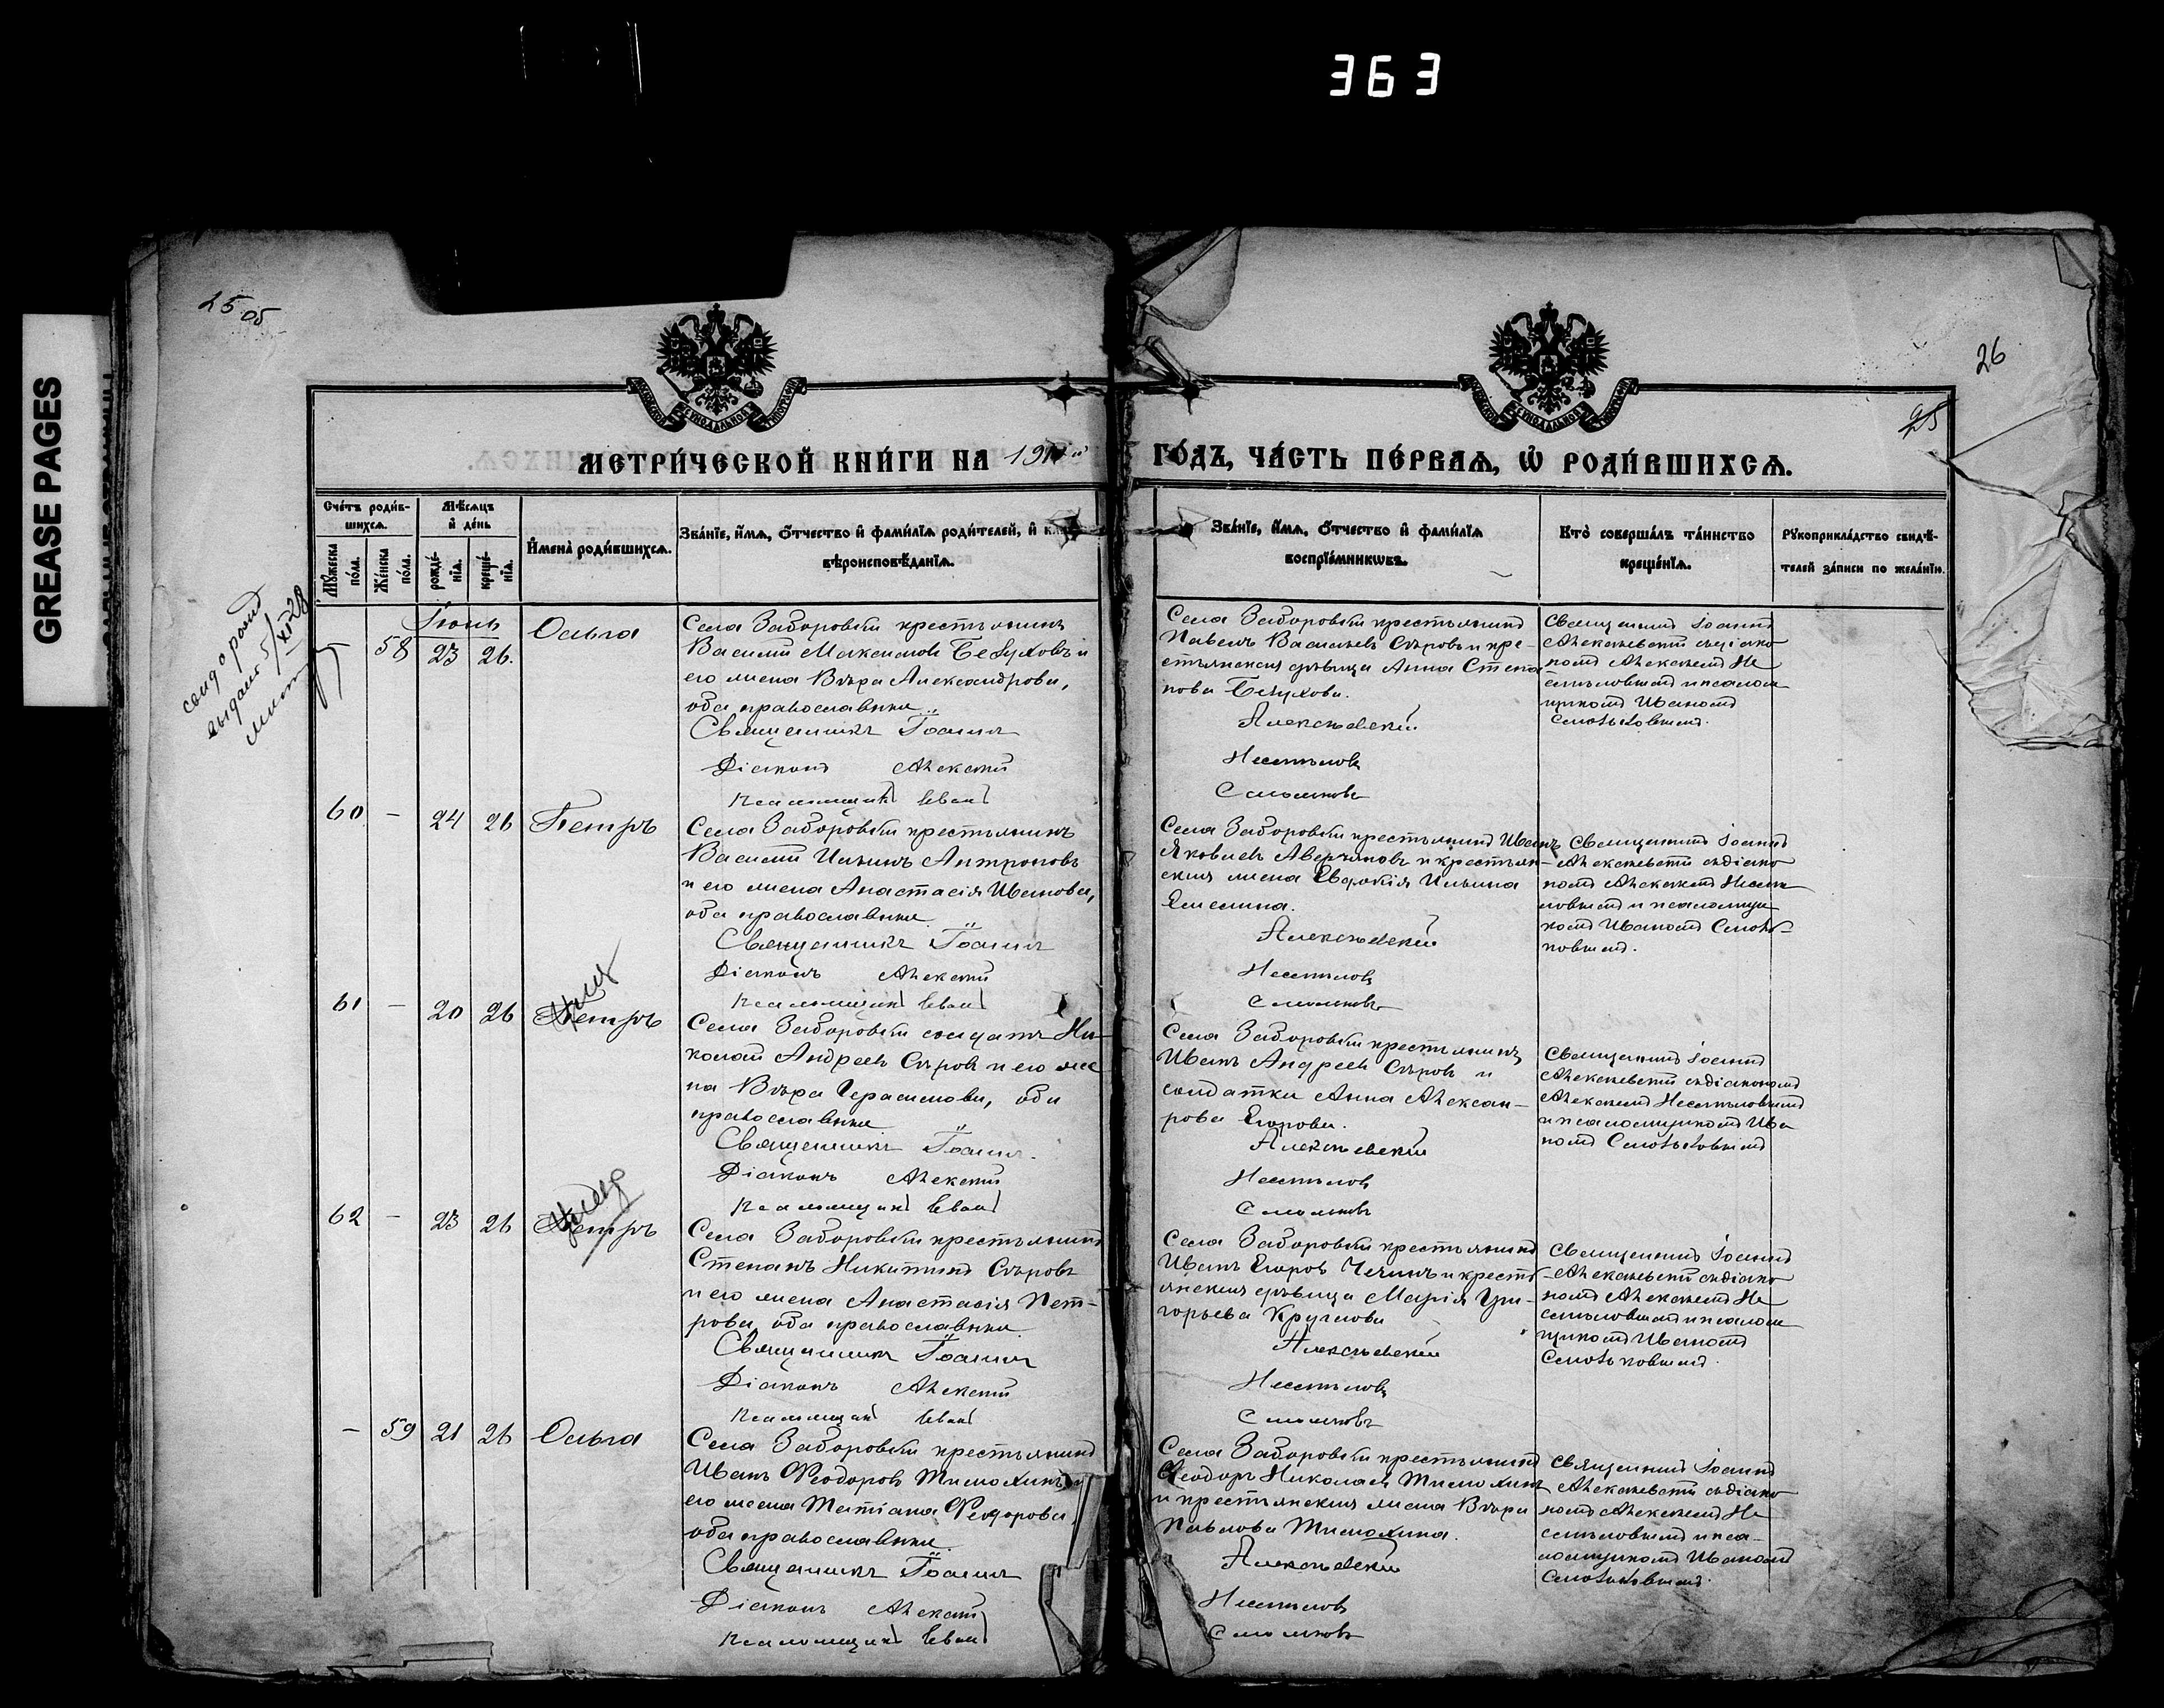 363
GREASE PAGES
25 об
26
25
МЕТРИ́ЧЕСКОЙ КНИ́ГИ НА 191
ГО́ДЪ, ЧА́СТЬ ПЕ́РВАѦ, Ѡ҆ РОДИ́ВШИХСѦ.
Сче́тъ роди́в-
шихсѧ.
Мѣ́сѧцъ
и҆ де́нь
Мꙋ́жеска
по́ла.
Же́нска
по́ла.
рожде́-
нїѧ.
креще́-
нїѧ.
И҆мена̀ роди́вшихсѧ.
Зва́нїе, и҆́мѧ, ѻ҆́тчество и҆ фами́лїѧ роди́телей, и҆
вѣроисповѣ́данїѧ.
Зва́нїе, и҆́мѧ, ѻ҆́тчество и҆ фами́лїѧ
воспрїе́мникѡвъ.
Кто̀ соверша́лъ та́инство
креще́нїѧ.
Рꙋкоприкла́дство свидѣ́-
телей за́писи по жела́нїю.
свид о рожд
выдано 5/XI 28
Іюнь
58 23 26. Ольга
Села Заборовки крестьянинъ
Василій Максимовъ Безуховъ и
его жена Вѣра Александрова,
оба православные.
Священникъ Іоаннъ
Діаконъ Алексѣй
Псаломщикъ Иван
Села Заборовки крестьянинъ
Павелъ Васильевъ Сѣровъ и кре-
стьянская дѣвица Анна Степа
нова Безухова.
Алексѣевскій
Несмѣловъ
Смольковъ
Священникъ Іоаннъ
Алексѣевскій съ діако
номъ Алексѣемъ Не
смѣловымъ и псалом
щикомъ Иваномъ
Смольковымъ.
60 - 24 26 Петръ
Села Заборовки крестьянинъ
Василій Ильинъ Антроповъ
и его жена Анастасія Иванова,
оба православные
Священникъ Іоаннъ
Діаконъ Алексѣй
Псаломщикъ Иван
Села Заборовки крестьянинъ Иванъ
Яковлевъ Аверьяновъ и крестьян-
ская жена Евдокія Ильина
Емелина.
Алексѣевскій
Несмѣловъ
Смольковъ
Священникъ Іоаннъ
Алексѣевскій съ діако
номъ Алексѣемъ Несмѣ
ловымъ и псаломщи
комъ Иваномъ Смоль-
ковымъ.
61 - 20 26 Петръ
Села Заборовки солдатъ Ни-
колай Андреевъ Сѣровъ и его же
на Вѣра Герасимова, оба
православные
Священникъ Іоаннъ.
Діаконъ Алексѣй
Псаломщикъ Иван
Села Заборовки крестьянинъ
Иванъ Андреевъ Сѣровъ и
солдатка Анна Алексан-
рова Егорова.
Алексѣевскій
Несмѣловъ
Смольковъ
Священникъ Іоаннъ
Алексѣевскій съ діакономъ
Алексѣемъ Несмѣловымъ
и псаломщикомъ Ива
номъ Смольковымъ
62 - 23 26 Петръ
умеръ
Села Заборовки крестьянинъ
Степанъ Никитинъ Сѣровъ
и его жена Анастасія Пет-
рова, оба православные.
Священникъ Іоаннъ
Діаконъ Алексѣй
Псаломщикъ Иван
Села Заборовки крестьянинъ
Иванъ Егоровъ Чечинъ и кресть
янская дѣвица Марія Гри-
горьева Круглова
Алексѣевскій
Несмѣловъ
Смольковъ
Священникъ Іоаннъ
Алексѣевскій съ діако
номъ Алексѣемъ Не
смѣловымъ и псалом
щикомъ Иваномъ
Смольковымъ.
- 59 21 26 Ольга
Села Заборовки крестьянинъ
Иванъ Ѳеодоровъ Тимохинъ и
его жена Татіана Ѳеодорова,
оба православные.
Священникъ Іоаннъ
Діаконъ Алексѣй
Псаломщикъ Иван
Села Заборовки крестьянинъ
Ѳеодоръ Николаевъ Тимохинъ
и крестьянская жена Вѣра
Павлова Тимохина.
Алексѣевскій
Несмѣловъ
Смольковъ
Священникъ Іоаннъ
Алексѣевскій съ діако
номъ Алексѣемъ Не
смѣловымъ и пса-
ломщикомъ Иваномъ
Смольковымъ.